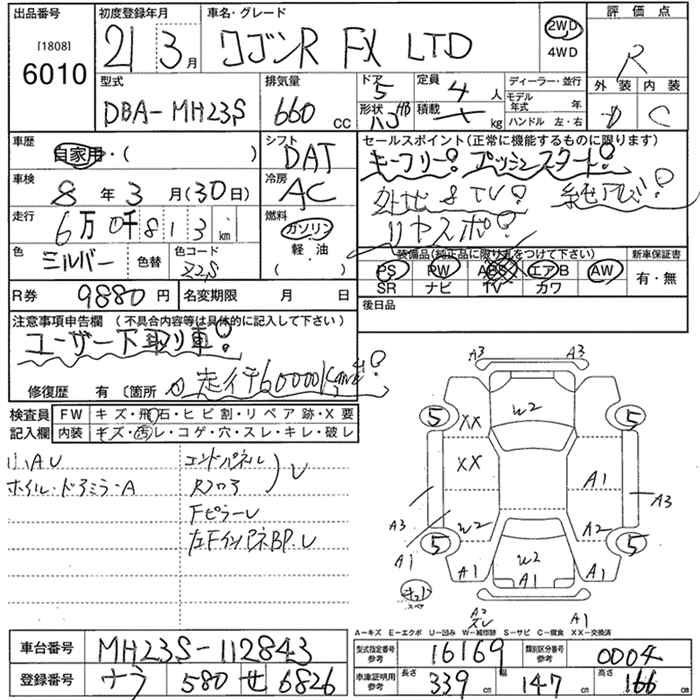 出品番号
[1808]
6010
初度登録年月
21 3月
車名・グレード
ワゴンR FX LTD
2WD
4WD
評価点
R
型式
DBA-MH23S
排気量
660 cc
ドア
5
形状
定員
4 人
積載
kg
ディーラー・並行
モデル年式 年
ハンドル 左・右
外装 内装
D C
車歴
自家用・( )
シフト
DAT
セールスポイント(正常に機能するものに限ります)
キーフリー! プッシュスタート!
車検
8年3月(30日)
冷房
AC
走行
6万0千813 km
燃料
ガソリン
軽・油
( )
リヤスポ!
色
シルバー
色替
色コード
Z2S
装備品(純正品に限り丸をつけて下さい)
PS PW ABS エアB AW
SR ナビ TV カワ
新車保証書
有・無
R券
9880円
名変期限 月 日
後日品
注意事項申告欄 (不具合内容等は具体的に記入して下さい)
ユーザー下取り車!
修復歴 有 〔箇所
走行60000
検査員記入欄
FW キズ・飛石・ヒビ割・リペア跡・X要
内装 キズ・汚レ・コゲ・穴・スレ・キレ・破レ
小AU
ホイル・ドアミラーA
エンドパネル
Rフロア
U
FピラーU
左FインパネBP.U
A3 A3
5 5
XX W2
XX A1
A3 A3
A1
W2 A2
5 5
W2
A1 A1 A1
スペア
A2
スレ
A1
A=キズ E=エクボ U=凹み W=補修跡 S=サビ C=腐食 XX=交換済
車台番号
MH23S-112843
型式指定番号
参考
16169
類別区分番号
参考
0004
登録番号
ナラ 580 せ 6826
車庫証明用
参考
長さ 339 cm
幅 147 cm
高さ 166 cm